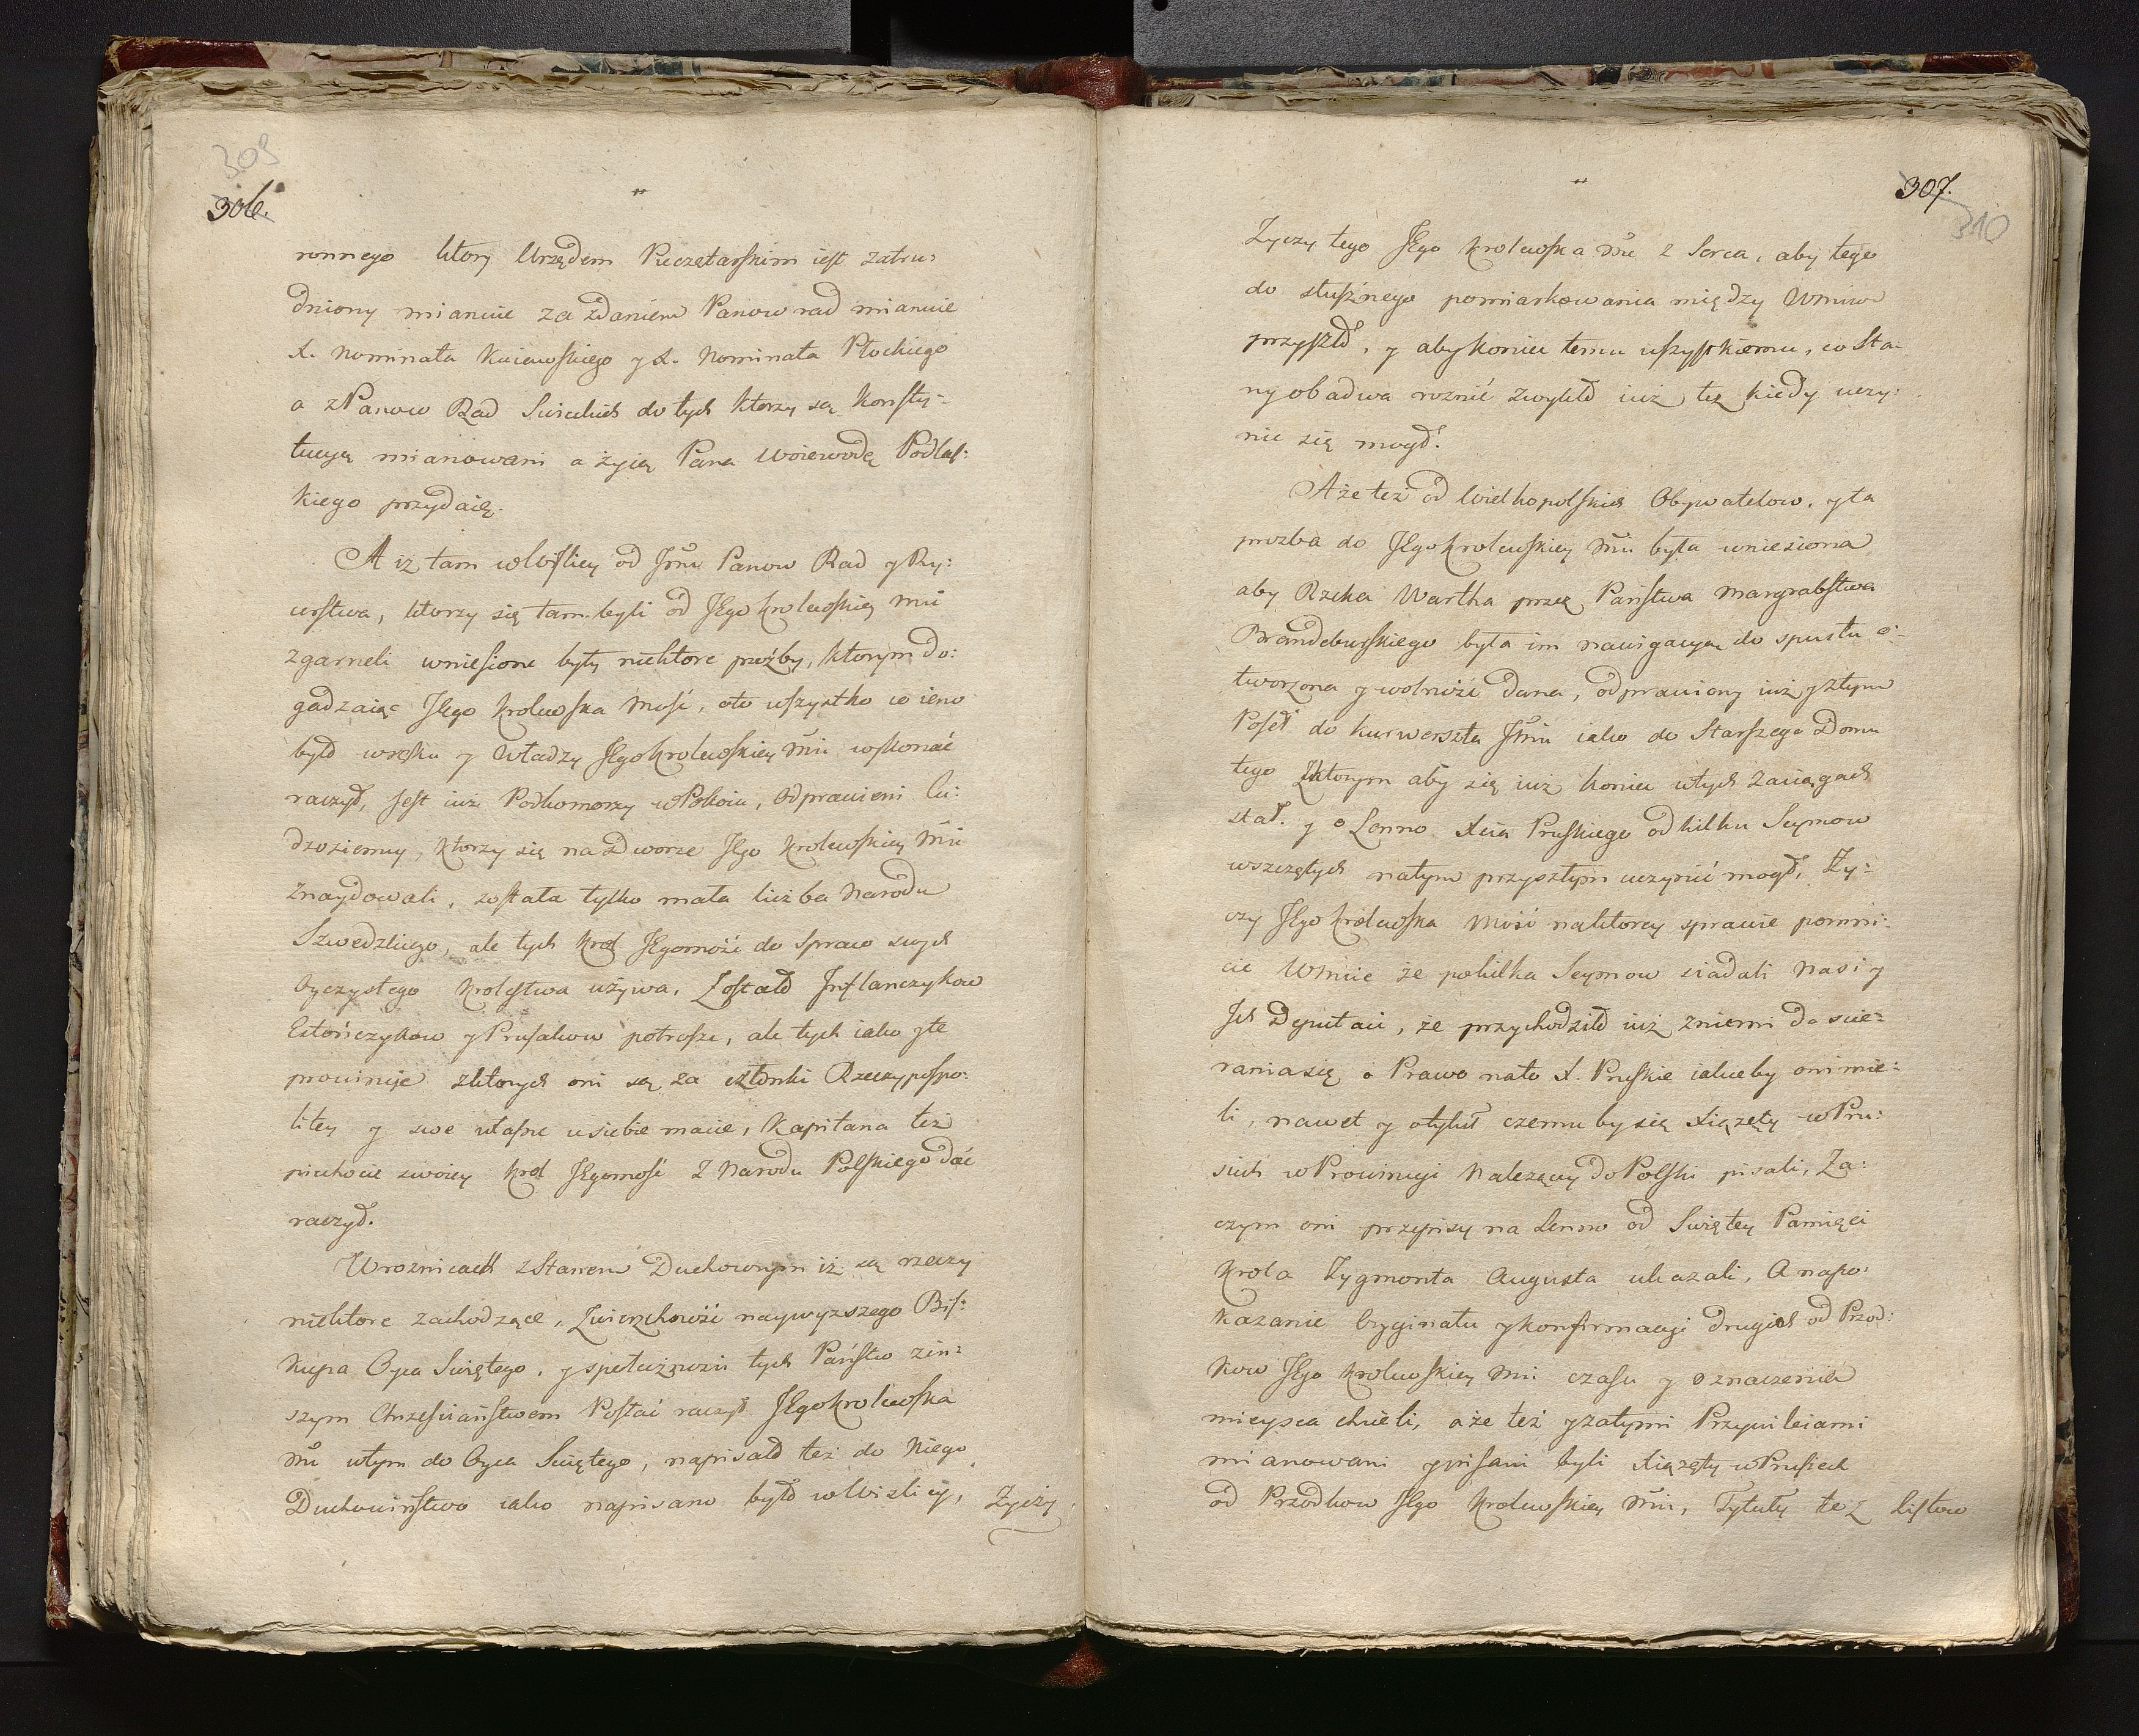 309
306.
ronnego ktory Urzędem Pieczętarskim iest zatru:
dniony mianuie za zdaniem Panow rad mianuie
X. Nominata Kuiawskiego y X. Nominata Płockiego
a z Panow Rad Swieckich do tych ktorzy są Konsty-
tucyą mianowani a żyią Pana Woiewodę Podlas:
kiego przydaię.
A iż tam w Wislicy od Ichm Panow Rad y Ry:
cerstwa, ktorzy się tam byli od JEgo Krolewskiey Mci
zgarneli wniesione były niektore prozby, ktorym do:
gadzaiąc JEgo Krolewska Mość, oto wszystko co ieno
było w ręku y władzy JEgo Krolewskiey Mci wykonać
raczył, jest iuż Podkomorzy w Pokoiu, odprawieni Cu:
dzoziemcy, ktorzy się na Dworze JEgo Krolewskiey Mci
znaydowali, została tylko mała liczba Narodu
Szwedzkiego, ale tych Krol JEgomość do Spraw swych
Oyczystego Krolestwa używa, Zostało Inflanczykow
Estończykow y Prusakow potrosze, ale tych iako y te
prouincye z ktorych oni są za członki Rzeczypospo:
litey y swe własne u siebie macie, Kapitana też
piechocie swoiey Krol JEgomość z Narodu Polskiego dać
raczył.
W roznicach z Stanem Duchownym iż są rzeczy
niektore zachodzące, Zwierzchność naywyzszego Bis:
kupa Oyca Swiętego, y społeczności tych Państw z in:
szym Chrześciaństwem Posłać raczył JEgo Krolewska
Mć w tym do Oyca Swiętego, napisało też do Niego
Duchowieństwo iako napisano było w Wislicy, Zyczy
307.
310
Zyczy tego JEgo Krolewska Mć z Serca, aby tego
do słusznego pomiarkowania między Wmciw
przyszło, y aby koniec temu wszystkiemu, co Sta-
ny obadwa roznić zwykło iuż też kiedy uczy:
nic się mogło.
A że też od Wielkopolskich Obywatelow, y ta
prozba do JEgo Krolewskiey Mci była wniesiona
aby Rzeka Wartha przez Państwa Margrabstwa
Brandeburskiego była im nawigacyą do spustu o:
tworzona y wolność dana, odprawiony iuż y z tym
Poseł do Kurwerszta Jmci iako do Starszego Domu
tego z ktorym aby się iuż koniec w tych zaciągach
stał. y o Lenno Xcia Pruskiego od kilku Seymow
wszczętych na tym przyszłym uczynić mogł, Zy:
czy JEgo Krolewska Mość na ktorey sprawie pomni:
cie Wmcie że po kilka Seymow siadali Nasi y
Ich Deputaci, że przychodziło iuż z niemi do scie:
rania się o Prawo na to X. Pruskie iakieby oni mie:
li, nawet y o tytuł czemu by się Xiążęty w Pru:
siech w Prowincyi Nalezącey do Polski pisali, Za:
czym oni przepisy na Lenno od Swiętey Pamięci
Krola Zygmonta Augusta ukazali, A na po:
kazanie Oryginału y konfirmacyi drugich od Przod:
kow JEgo Krolewskiey Mci czasu y oznaczenia
mieysca chcieli, a że też y za tymi Przywileiami
mianowani y pisani byli Xiążęty w Prusiech
od Przodkow JEgo Krolewskiey Mci, Tytuły te z Listow